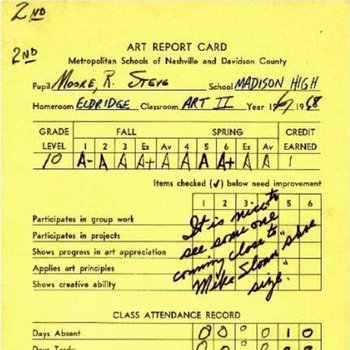 2ND
2ND
ART REPORT CARD
Metropolitan Schools of Nashville and Davidson County
Pupil MOORE, R. STEVE School MADISON HIGH
Homeroom ELDRIDGE Classroom ART II Year 1967 1968
GRADE FALL SPRING CREDIT
LEVEL 1 2 3 Ex Av 4 5 6 Ex Av EARNED
10 A- A A A+ A A A A+ A A 1
Items checked (✓) below need improvement
1 2 3 4 5 6
Participates in group work
Participates in projects
Shows progress in art appreciation
Applies art principles
Shows creative ability
It is nice to
see some one
coming close to
"Mike Sloan" shoe
size.
CLASS ATTENDANCE RECORD
Days Absent 0 0 0 0 1 0
Days Tardy